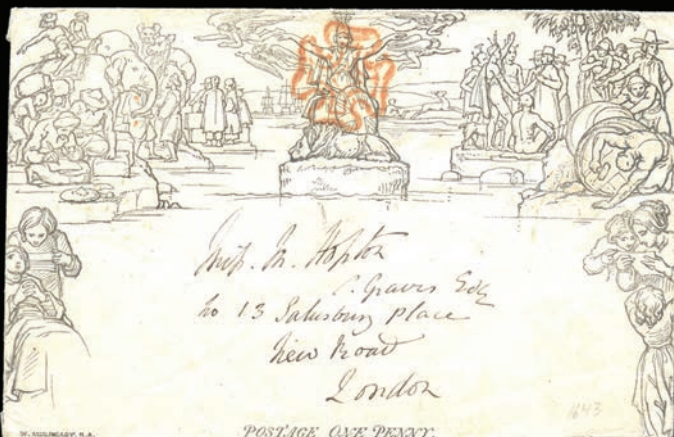 Miss. M. Hopton
C. Graves Esq
No 13 Salusbury Place
New Road
London
1643
W. MULREADY. R.A.
POSTAGE ONE PENNY.